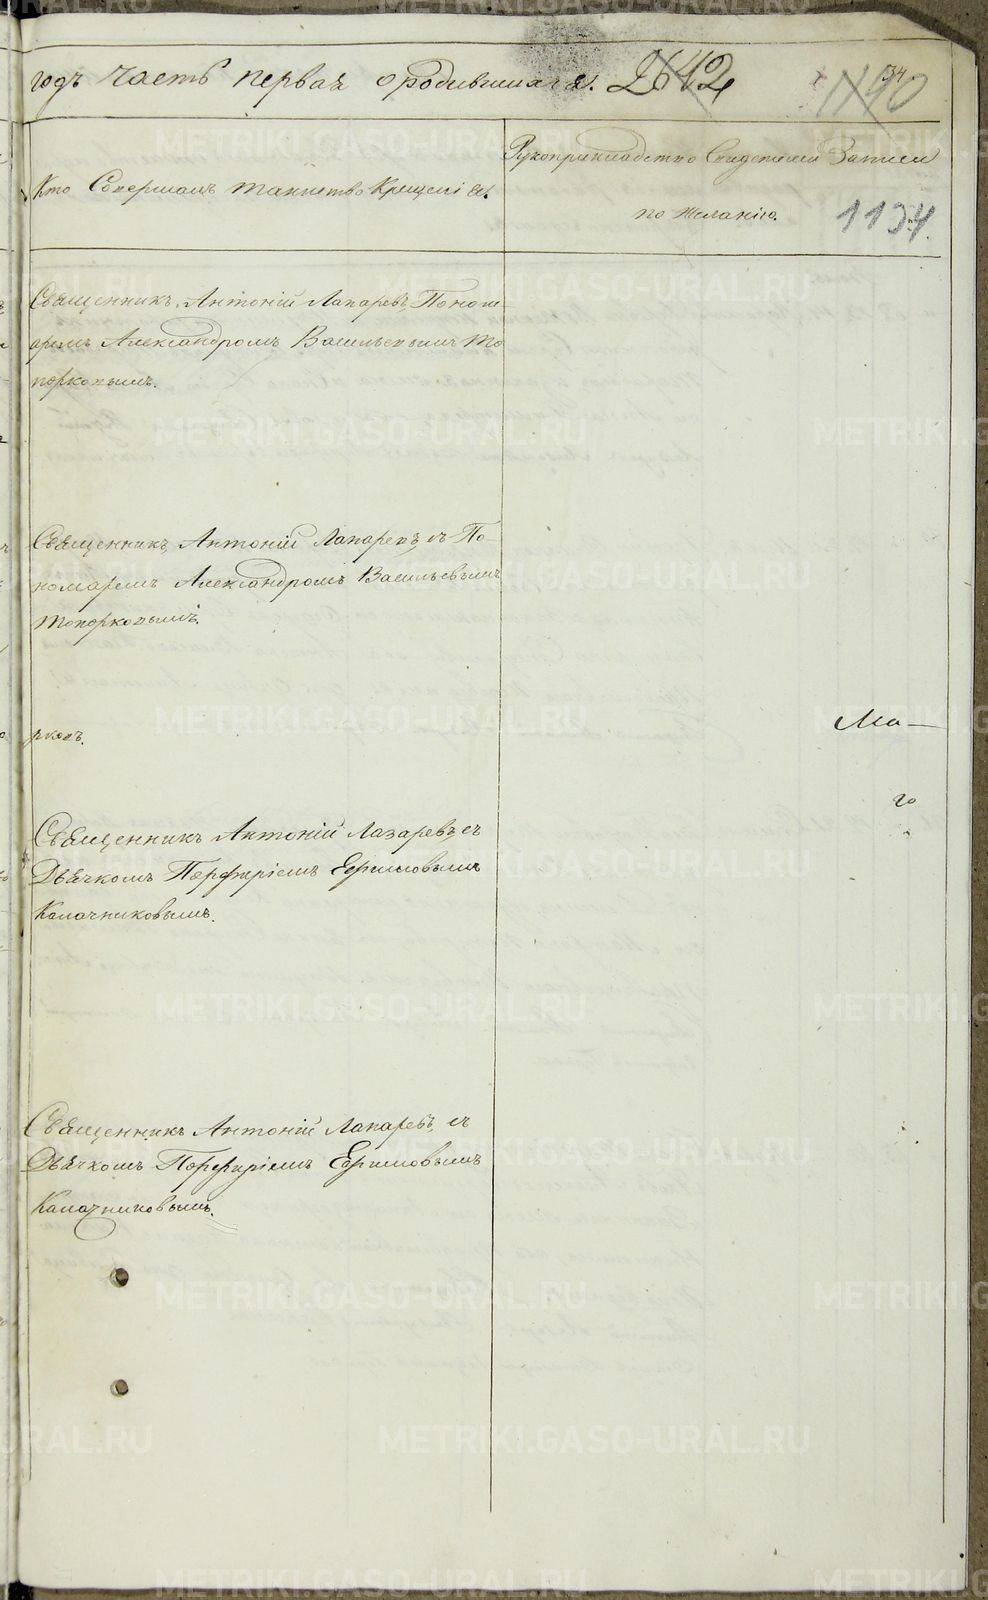 годъ часть первая о родившихся. 2642 34
1190
Кто Совершалъ таинство Крещенія.
Рукоприкладство Свидетелей Записи
по желанію. 1134.
Священникъ Антоній Лапаревъ, Поном-
аремъ Александромъ Васильевымъ То
порковымъ.
Священникъ Антоній Лапаревъ съ По-
номаремъ Александромъ Васильевымъ
Топорковымъ.
рковъ. Ма-
го
Священникъ Антоній Лазаревъ, съ
Дьячкомъ Порфиріемъ Ефимовымъ
Калачниковымъ.
Священникъ Антоній Лапаревъ, съ
Дьячкомъ Порфиріемъ Ефимовымъ
Калачниковымъ.
METRIKI.GASO-URAL.RU